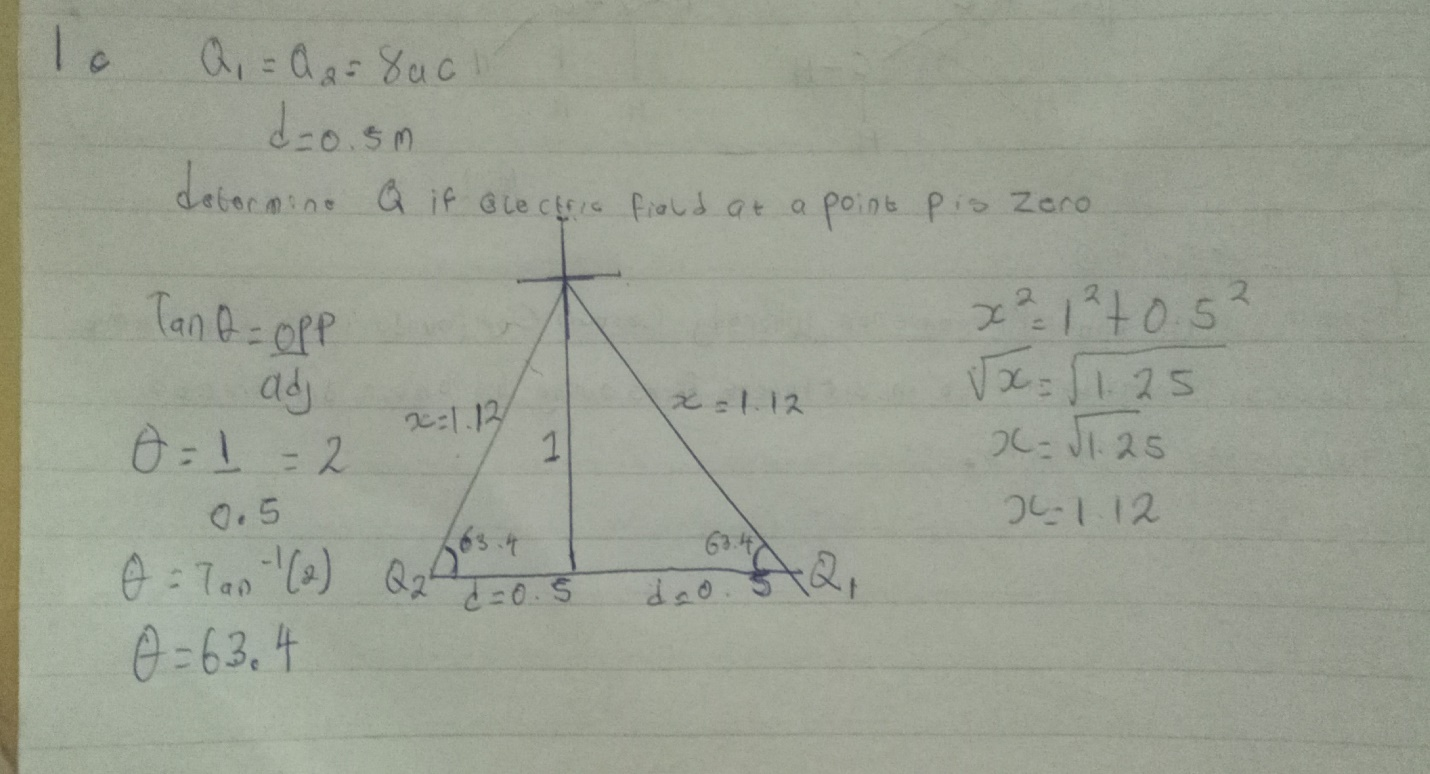 1c Q₁ = Q₂ = 8μC
d=0.5m
determine Q if electric field at a point p is zero
Tanθ = opp
adj
θ = 1 = 2
0.5
θ = Tan⁻¹(2)
θ = 63.4
x=1.12
1
x = 1.12
63.4
63.4
Q₂ d=0.5 d=0.5 Q₁
x² = 1² + 0.5²
√x = √1.25
x = √1.25
x = 1.12